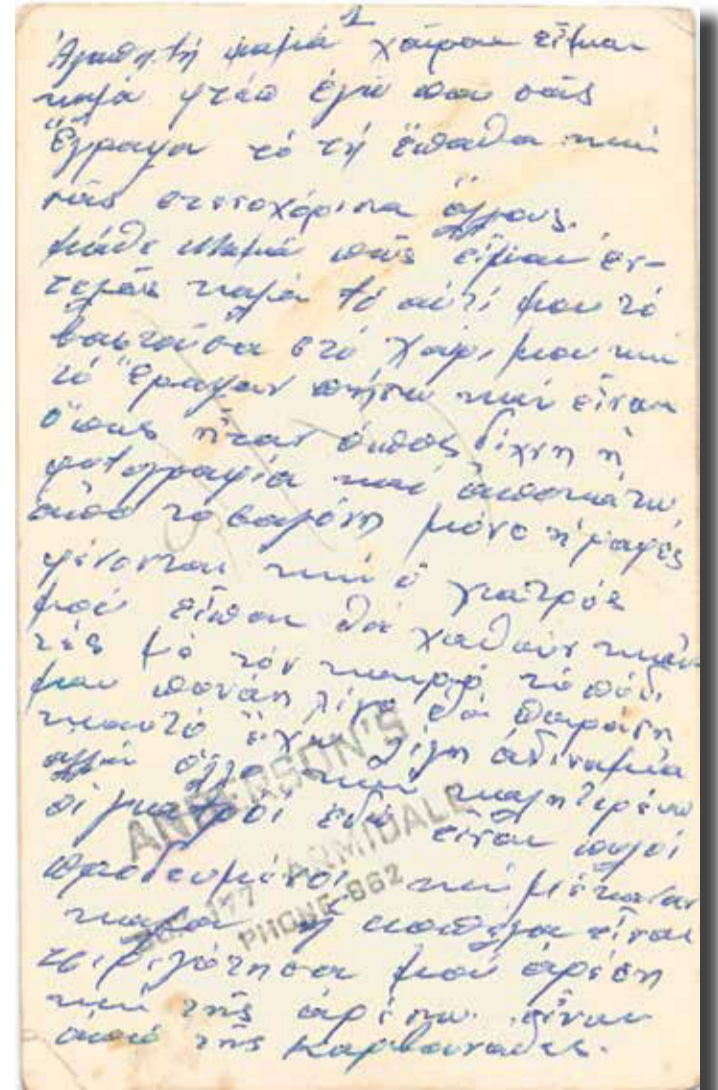 1
Ἀγαπητή μαμά χαίραι εἶμαι
καλά φτέο ἐγώ που σᾶς
Ἔγραψα τό τή ἔπαθα καί
σᾶς στενοχόρισα ὅλλους.
μάθε Μαμά πῶς εἶμαι ἐν-
τελῶς καλά τό αὐτί μου τό
βαστοῦσα στό χαίρι μου και
τό ἔραψαν πήσω καί εἶναι
ὅπως ἦταν ὁπος δίχνη ἡ
φοτογραφία καί ἀποκάτω
ἀπό το σαγόνη μόνο ἡ ραφές
φένονται καί ὁ γιατρός
μοῦ εἶπαι θά χαθοῦν και
τές μέ τόν καιρό, τό πόδι
μου πονάη λίγο θά περάση
κιαυτό ἔχω λίγη ἀδιναμία
ἀλλά ὅλλο καί καλητερέυω
οἱ γιατροί ἐδῶ εἶναι πολοί
προδευμένοι καί μέκαναν
καλά ἡ κοπέλα εἶναι
π.ριλότησα μοῦ ἀρέση
καί τῆς ἀρέσω. εἶναι
ἀπό τῆς Καρβουνάδες.
ANDERSON'S
177 ARMIDALE
PHONE 862